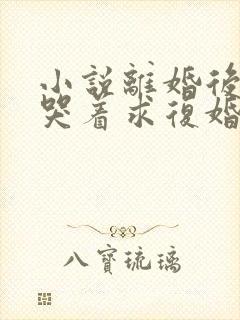 小説離婚後
哭着求復婚
八寳琉璃